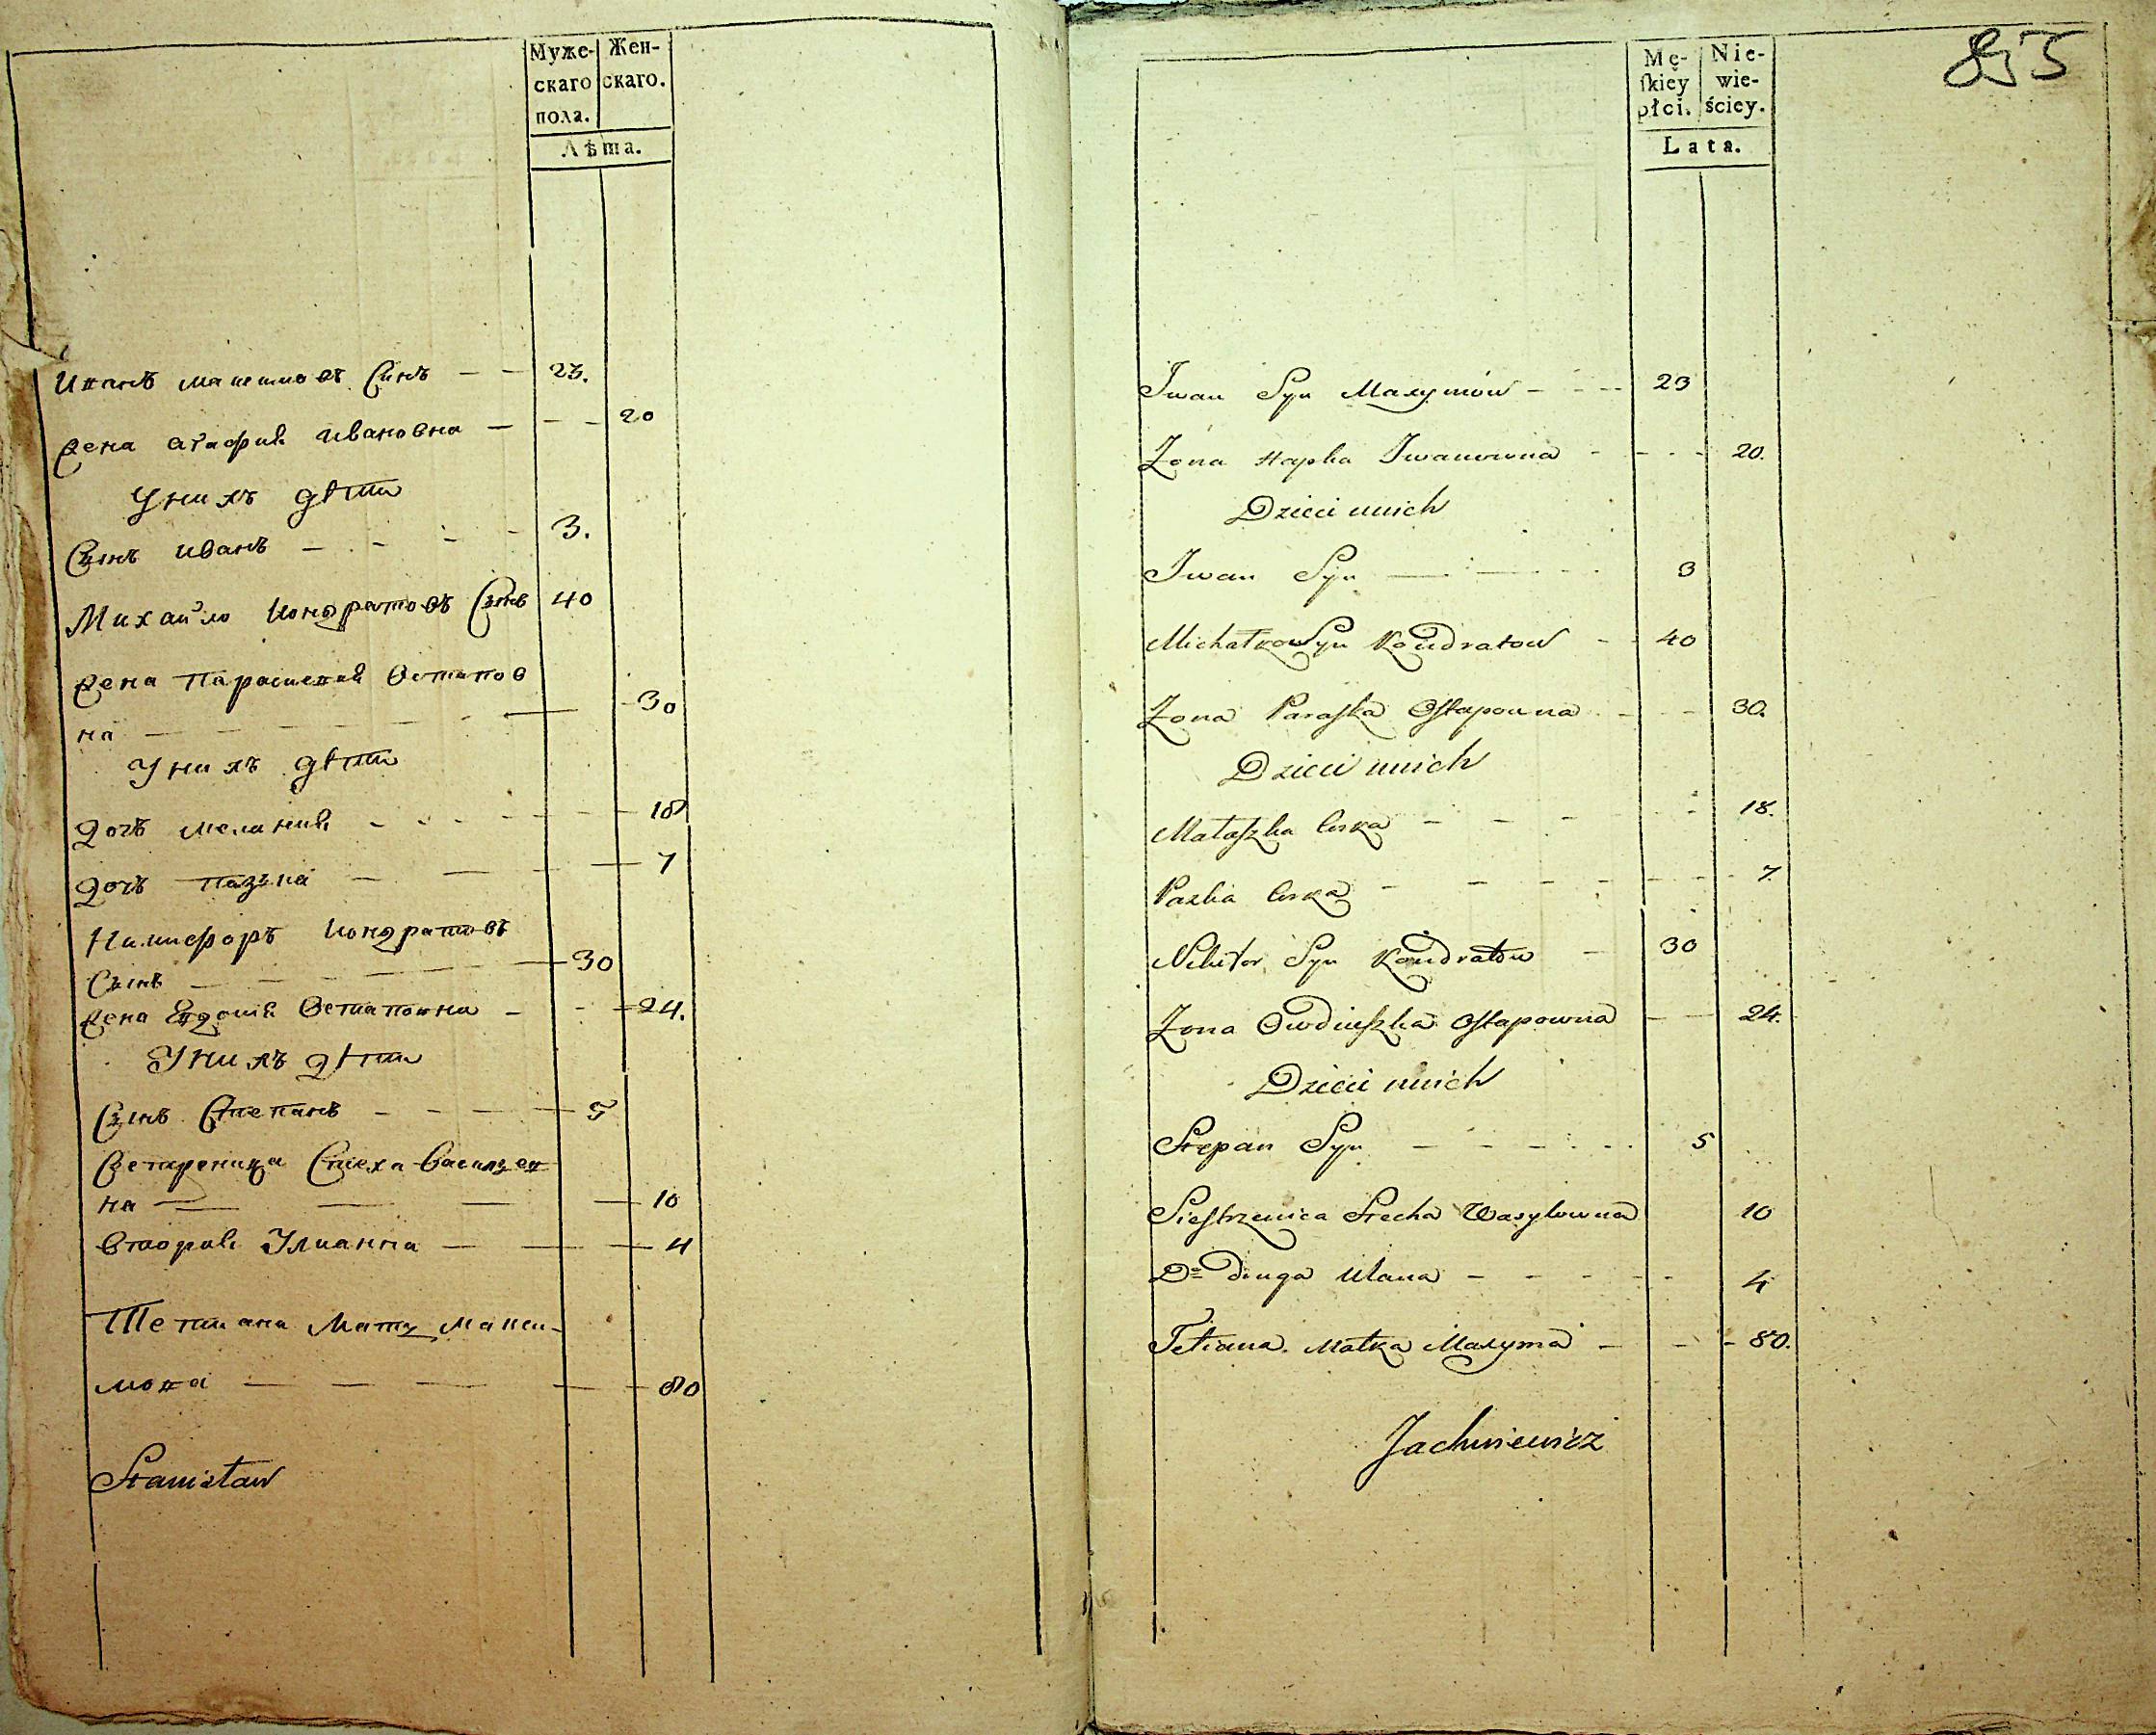 Муже- Жен-
скаго скаго.
пола.
Лѣта.
Иванъ максимовъ Синъ — — 23.
Жена агафия Ивановна — — — 20
У нихъ дѣти
Сынъ иванъ — - - - 3.
Михайло Кондратовъ Сынъ 40
Жена Параскевия Остапов
на — — — — 30
У нихъ дѣти
Дочь мелания - - - - - 18
Дочь пазъка — — - — 7
Никифоръ Кондратовъ
Сынъ — — — 30
Жена Евдокия Остаповна - - - 24.
У нихъ дѣти
Сынъ Степанъ - - - — 5
Сестреница Стеха Василев
на — — — — 10
Вторая Улианна — — — 4
Тетиана Мать Макси-
мова — — — — — 80
Stanisław
855
Mę- Nie-
ſkiey wie-
płci. ściey.
Lata.
Iwan Syn Maxymów - - - 23
Zona Hapka Iwanowna - - - - 20.
Dzieci unich
Iwan Syn — — - - 3
Michałko Syn Kondratow - - 40
Zona Paraſka Oſtapowna - - - 30.
Dzieci unich
Małaſzka Corka - - - - - 18.
Pazka Corka - - - - - - - 7.
Nikifor Syn Kondratow - 30
Zona Owdiuſzka Oſtapowna — — 24.
Dzieci unich
Stepan Syn — - - - - - 5
Sieſtrzenica Stecha Wasylowna 10
Do druga Ulana - - - - - 4
Tetiana Matka Maxyma - - - 80.
Jachniewicz